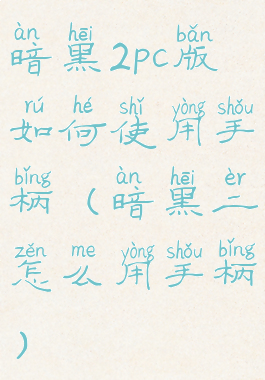 àn hēi bǎn
暗黑2pc版
rú hé shǐ yòng shǒu
如何使用手
bǐng àn hēi èr
柄(暗黑二
zěn me yòng shǒu bǐng
怎么用手柄
)